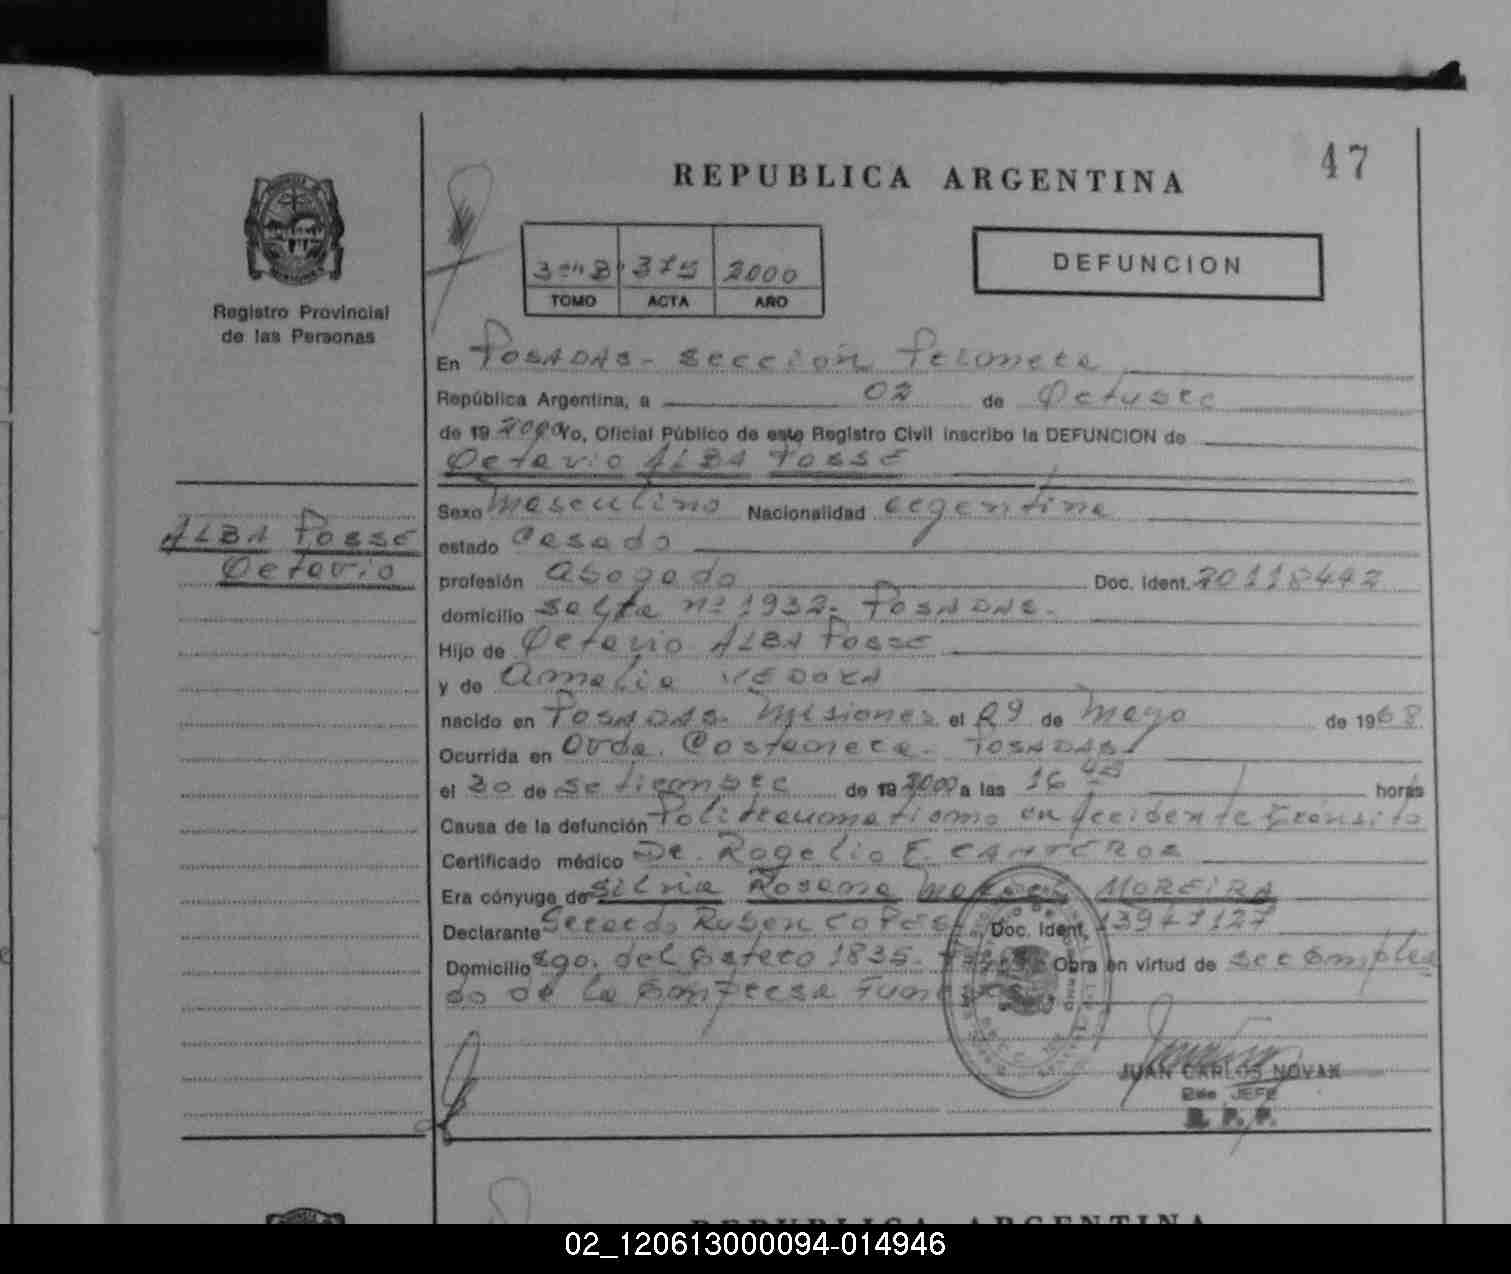 47
REPUBLICA ARGENTINA
DEFUNCION
375 2000
TOMO ACTA AÑO
Registro Provincial
de las Personas
En POSADAS - Sección Primera
República Argentina, a 02 de Octubre
de 19 2000 Yo, Oficial Público de este Registro Civil inscribo la DEFUNCION de
Octavio ALBA POSSE
Sexo Masculino Nacionalidad argentina
ALBA POSSE
Octavio
estado Casado
profesión Abogado Doc. Ident. 20118442
domicilio Salta nº 1932. POSADAS.
Hijo de Octavio ALBA POSSE
y de Amalia
nacido en POSADAS. Misiones el 29 de Mayo de 1968
Ocurrida en Avda. Costanera. POSADAS.
el 30 de Setiembre de 19 2000 a las 16 horas
Causa de la defunción Politraumatismo en Accidente Tránsito
Certificado médico Dr. Rogelio E. CANTEROS
Era cónyuge de Silvia Rosana MOREIRA
Declarante Gerardo Ruben Doc. Ident. 13947127
Domicilio Sgo. del Estero 1835. Obra en virtud de ser Emplea
do de la Empresa
JUAN CARLOS NOVAK
2do JEFE
R. P. P.
REPUBLICA ARGENTINA
02_120613000094-014946